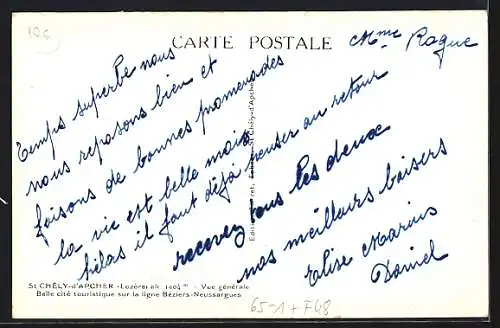 10€
CARTE POSTALE
Mme Rague
Temps superbe nous
nous reposons bien et
faisons de bonnes promenades
la vie est belle mais
hélas il faut déjà penser au retour
recevez tous les deux
nos meilleurs baisers
Elise Marius
Daniel
St CHÉLY-d'APCHER - Lozère alt. 1004 m - Vue générale
Belle cité touristique sur la ligne Béziers-Neussargues
65-1 + F48